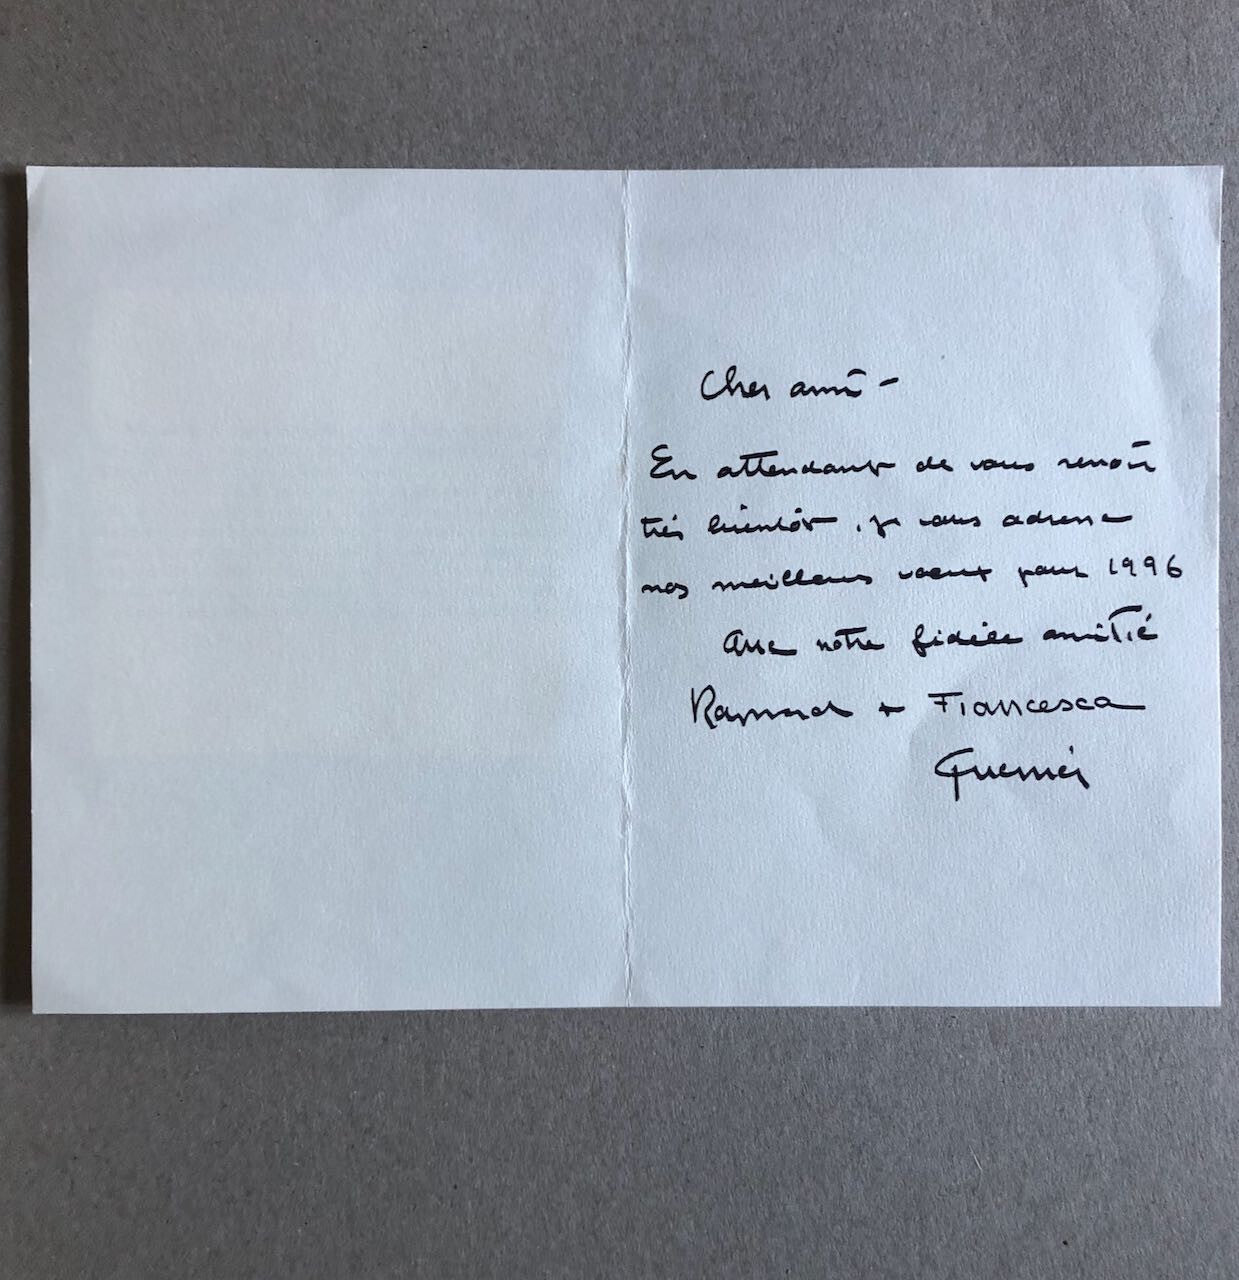 Cher ami -
En attendant de vous revoir
très bientôt, je vous adresse
nos meilleurs voeux pour 1996
Avec notre fidèle amitié
Raymond + Francesca
Guerrier